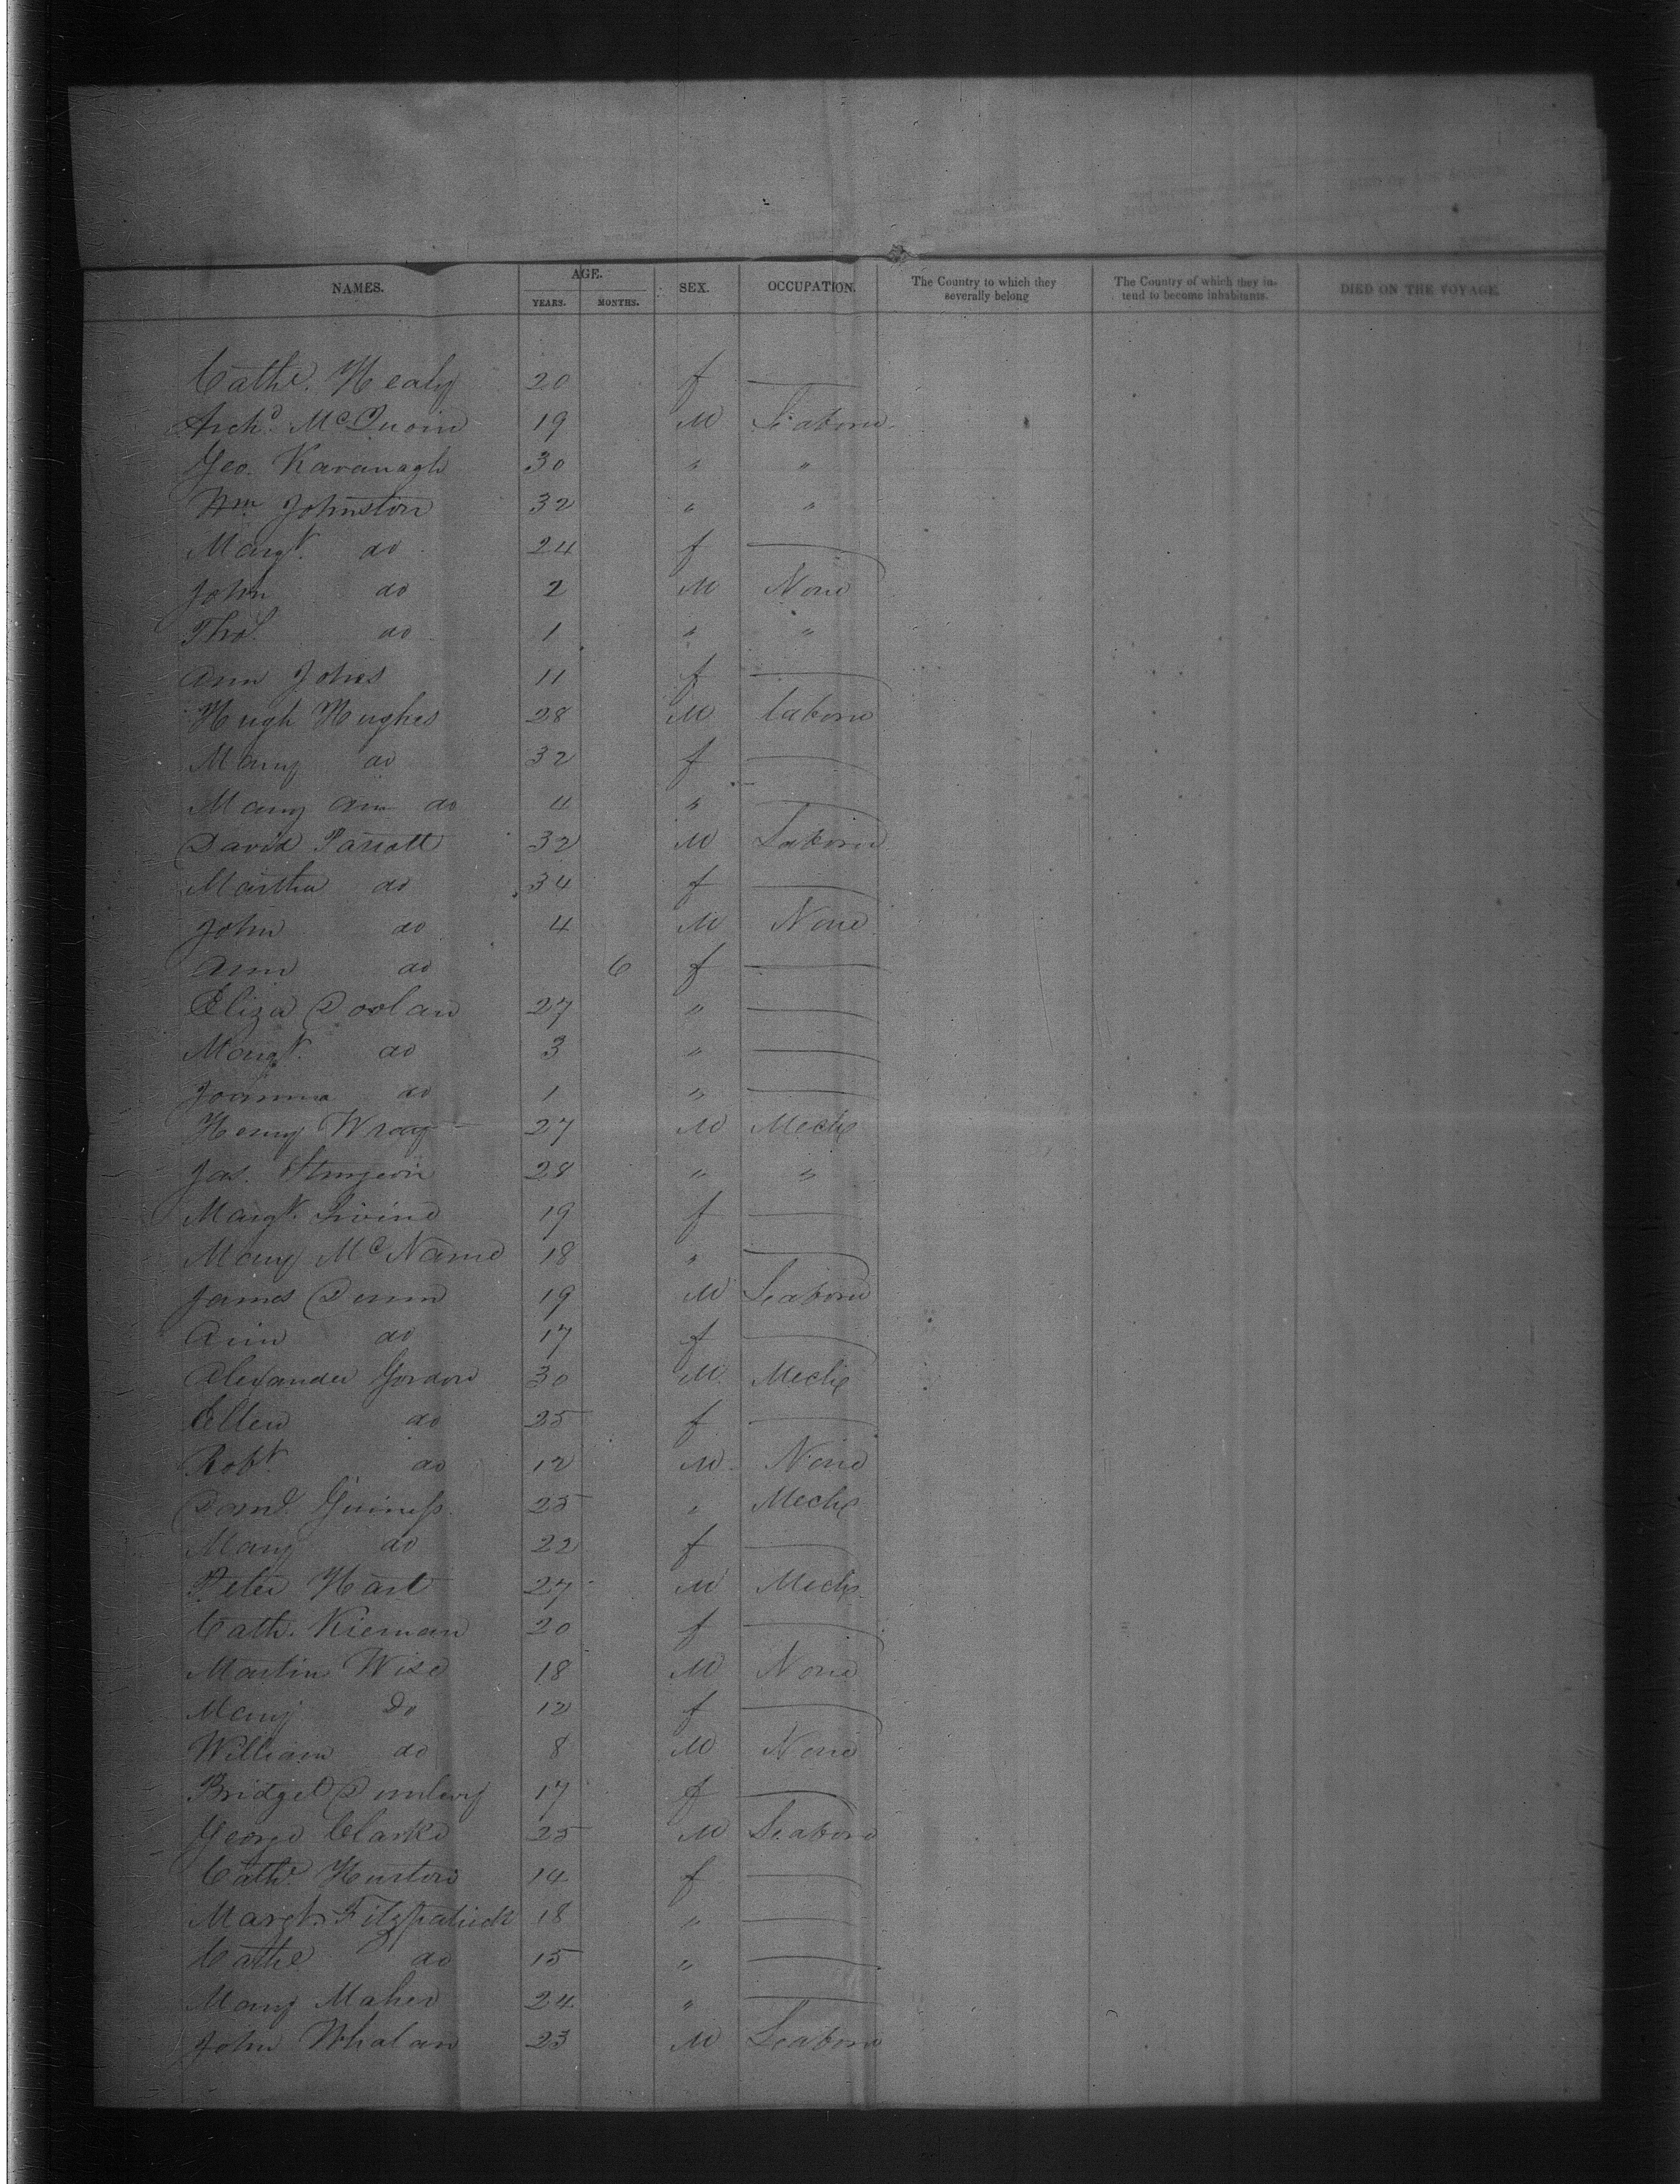 NAMES. AGE. YEARS. MONTHS. SEX. OCCUPATION. The Country to which they severally belong The Country of which they intend to become inhabitants. DIED ON THE VOYAGE.
Cathe. Healy 20 f —
Archd. McQuoin 19 M Labour
Geo. Kavanagh 30 " "
Wm Johnston 32 " "
Margt. do 24 f —
John do 2 M None
Thos. do 1 " "
Ann Johes 11 f —
Hugh Hughes 28 M labour
Mary do 32 f —
Mary Ann do 4 " —
David Parratt 32 M Labour
Martha do 34 f —
John do 4 M None
Ann do 6 f —
Eliza Doolan 27 " —
Margt. do 3 " —
Joanna do 1 " —
Henry Wray 27 M Mechc
Jas. Sturgeon 28 " "
Margt. Irvine 19 f —
Mary McName 18 " —
James Dunn 19 M Labour
Ann do 17 f —
Alexander Gordon 30 M Mechc
Ellen do 25 f —
Robt. do 12 M None
Guiness 25 " Mechc
Mary do 22 f —
Peter Hart 27 M Mechc
Cath. Kiernan 20 f —
Martin Wise 18 M None
Mary Do 12 f —
William do 8 M None
Bridget Dunlevy 17 f —
George Clarke 25 M Labour
Cathe. Huston 14 f —
Margt. Fitzpatrick 18 " —
Cathe do 15 " —
Mary Maher 24 " —
John Whalan 23 M Labour